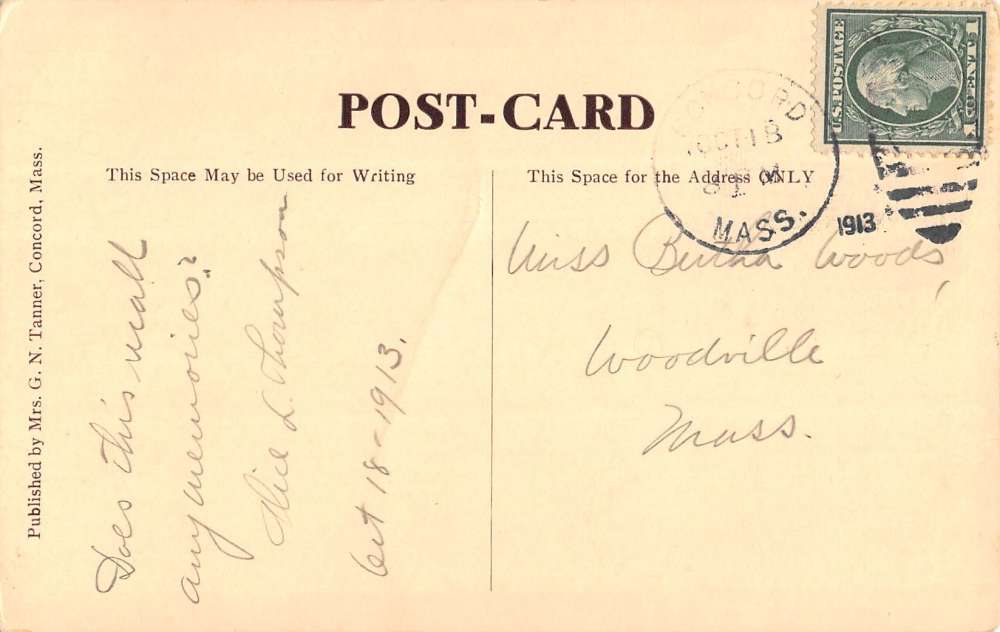 POST-CARD
U.S. POSTAGE
1 CENT 1
CONCORD
OCT 18
MASS.
1913
This Space May be Used for Writing
This Space for the Address ONLY
Published by Mrs. G. N. Tanner, Concord, Mass.
Does this recall
any memories?
Alice L. Thompson
Oct 18 - 1913.
Miss Bertha Woods,
Woodville
Mass.